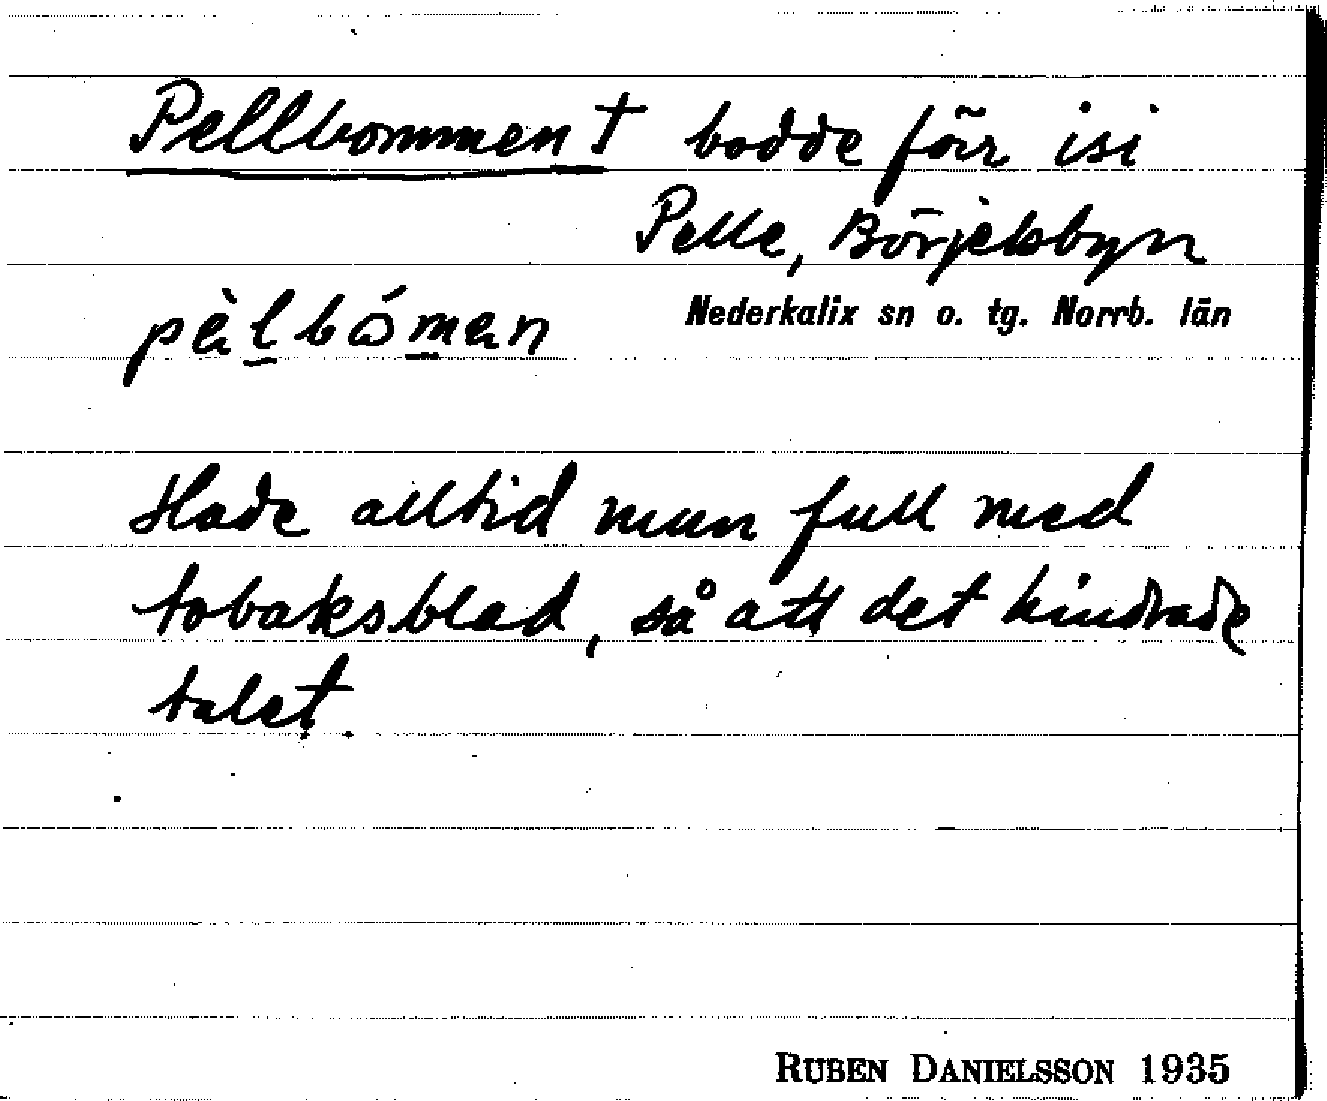 Pellbommen † bodde förr isi
Pelle, Börjelsbyn
pèlbómen Nederkalix sn o. tg. Norrb. län
Hade alltid mun full med
tobaksblad, så att det hindrade
talet.
RUBEN DANIELSSON 1935